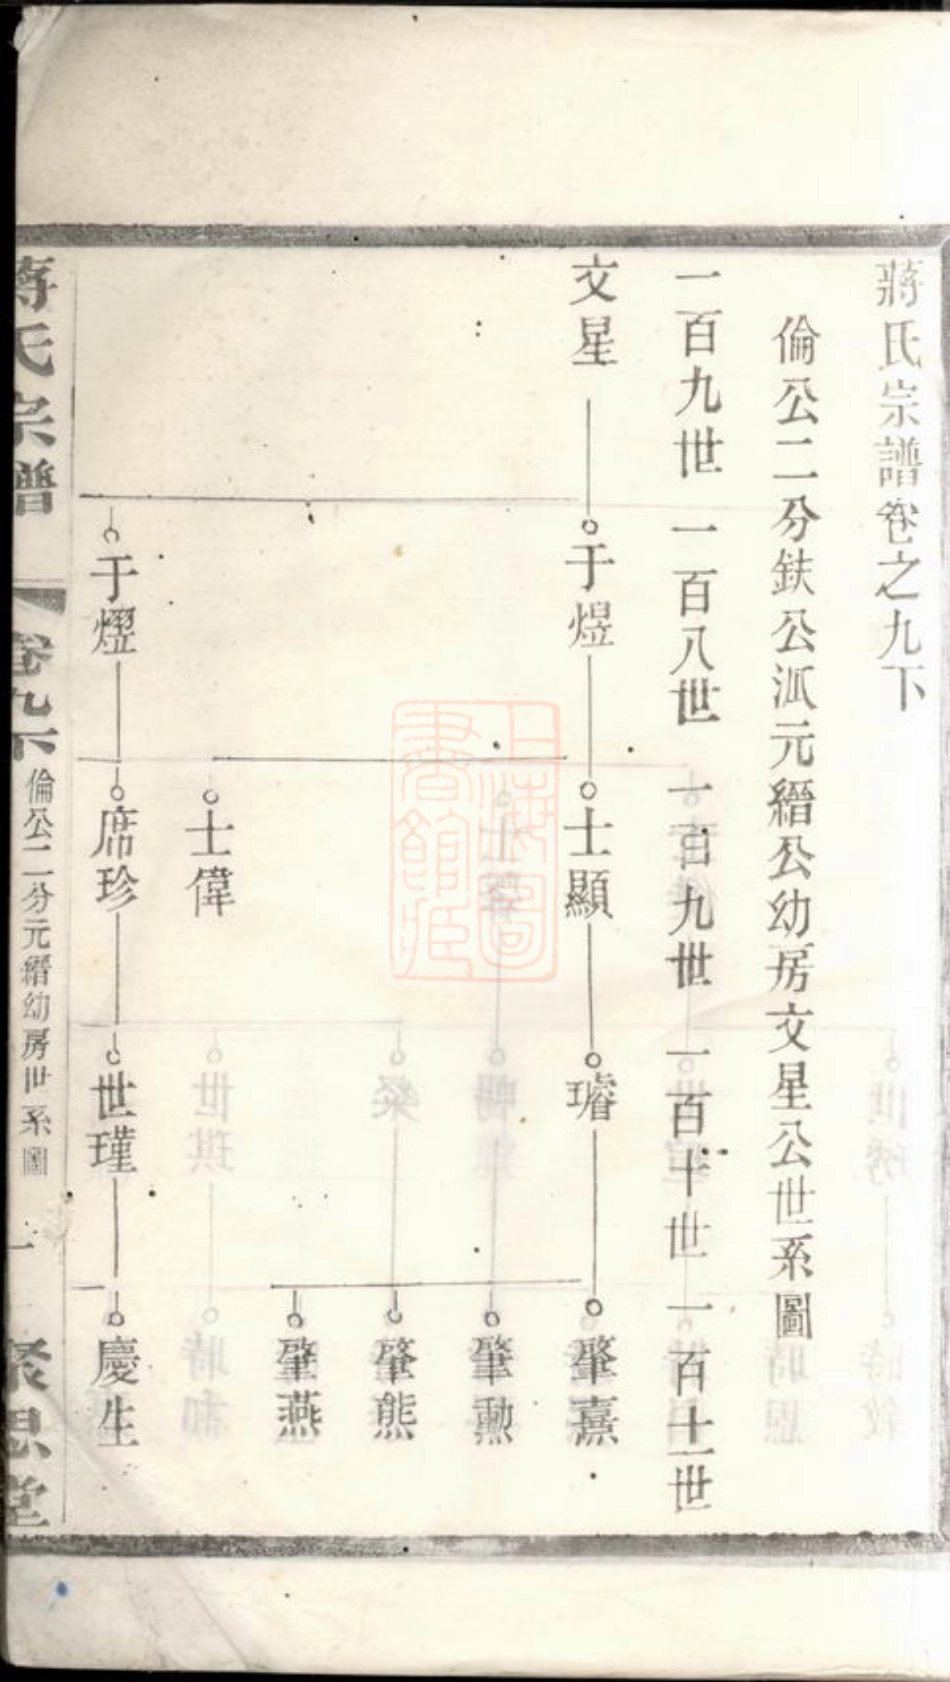 蔣氏宗譜卷之九下
倫公二分鈇公派元縉公幼房文星公世系圖
一百九世 一百八世 一百九世 一百十世 一百十一世
文星 于煜 士顯 璿 肇熹
肇勲
肇熊
肇燕
士偉
于熠 席珍 世瑾 慶生
蔣氏宗譜 卷九下 倫公二分元縉幼房世系圖 一 聚思堂
上海圖書館藏